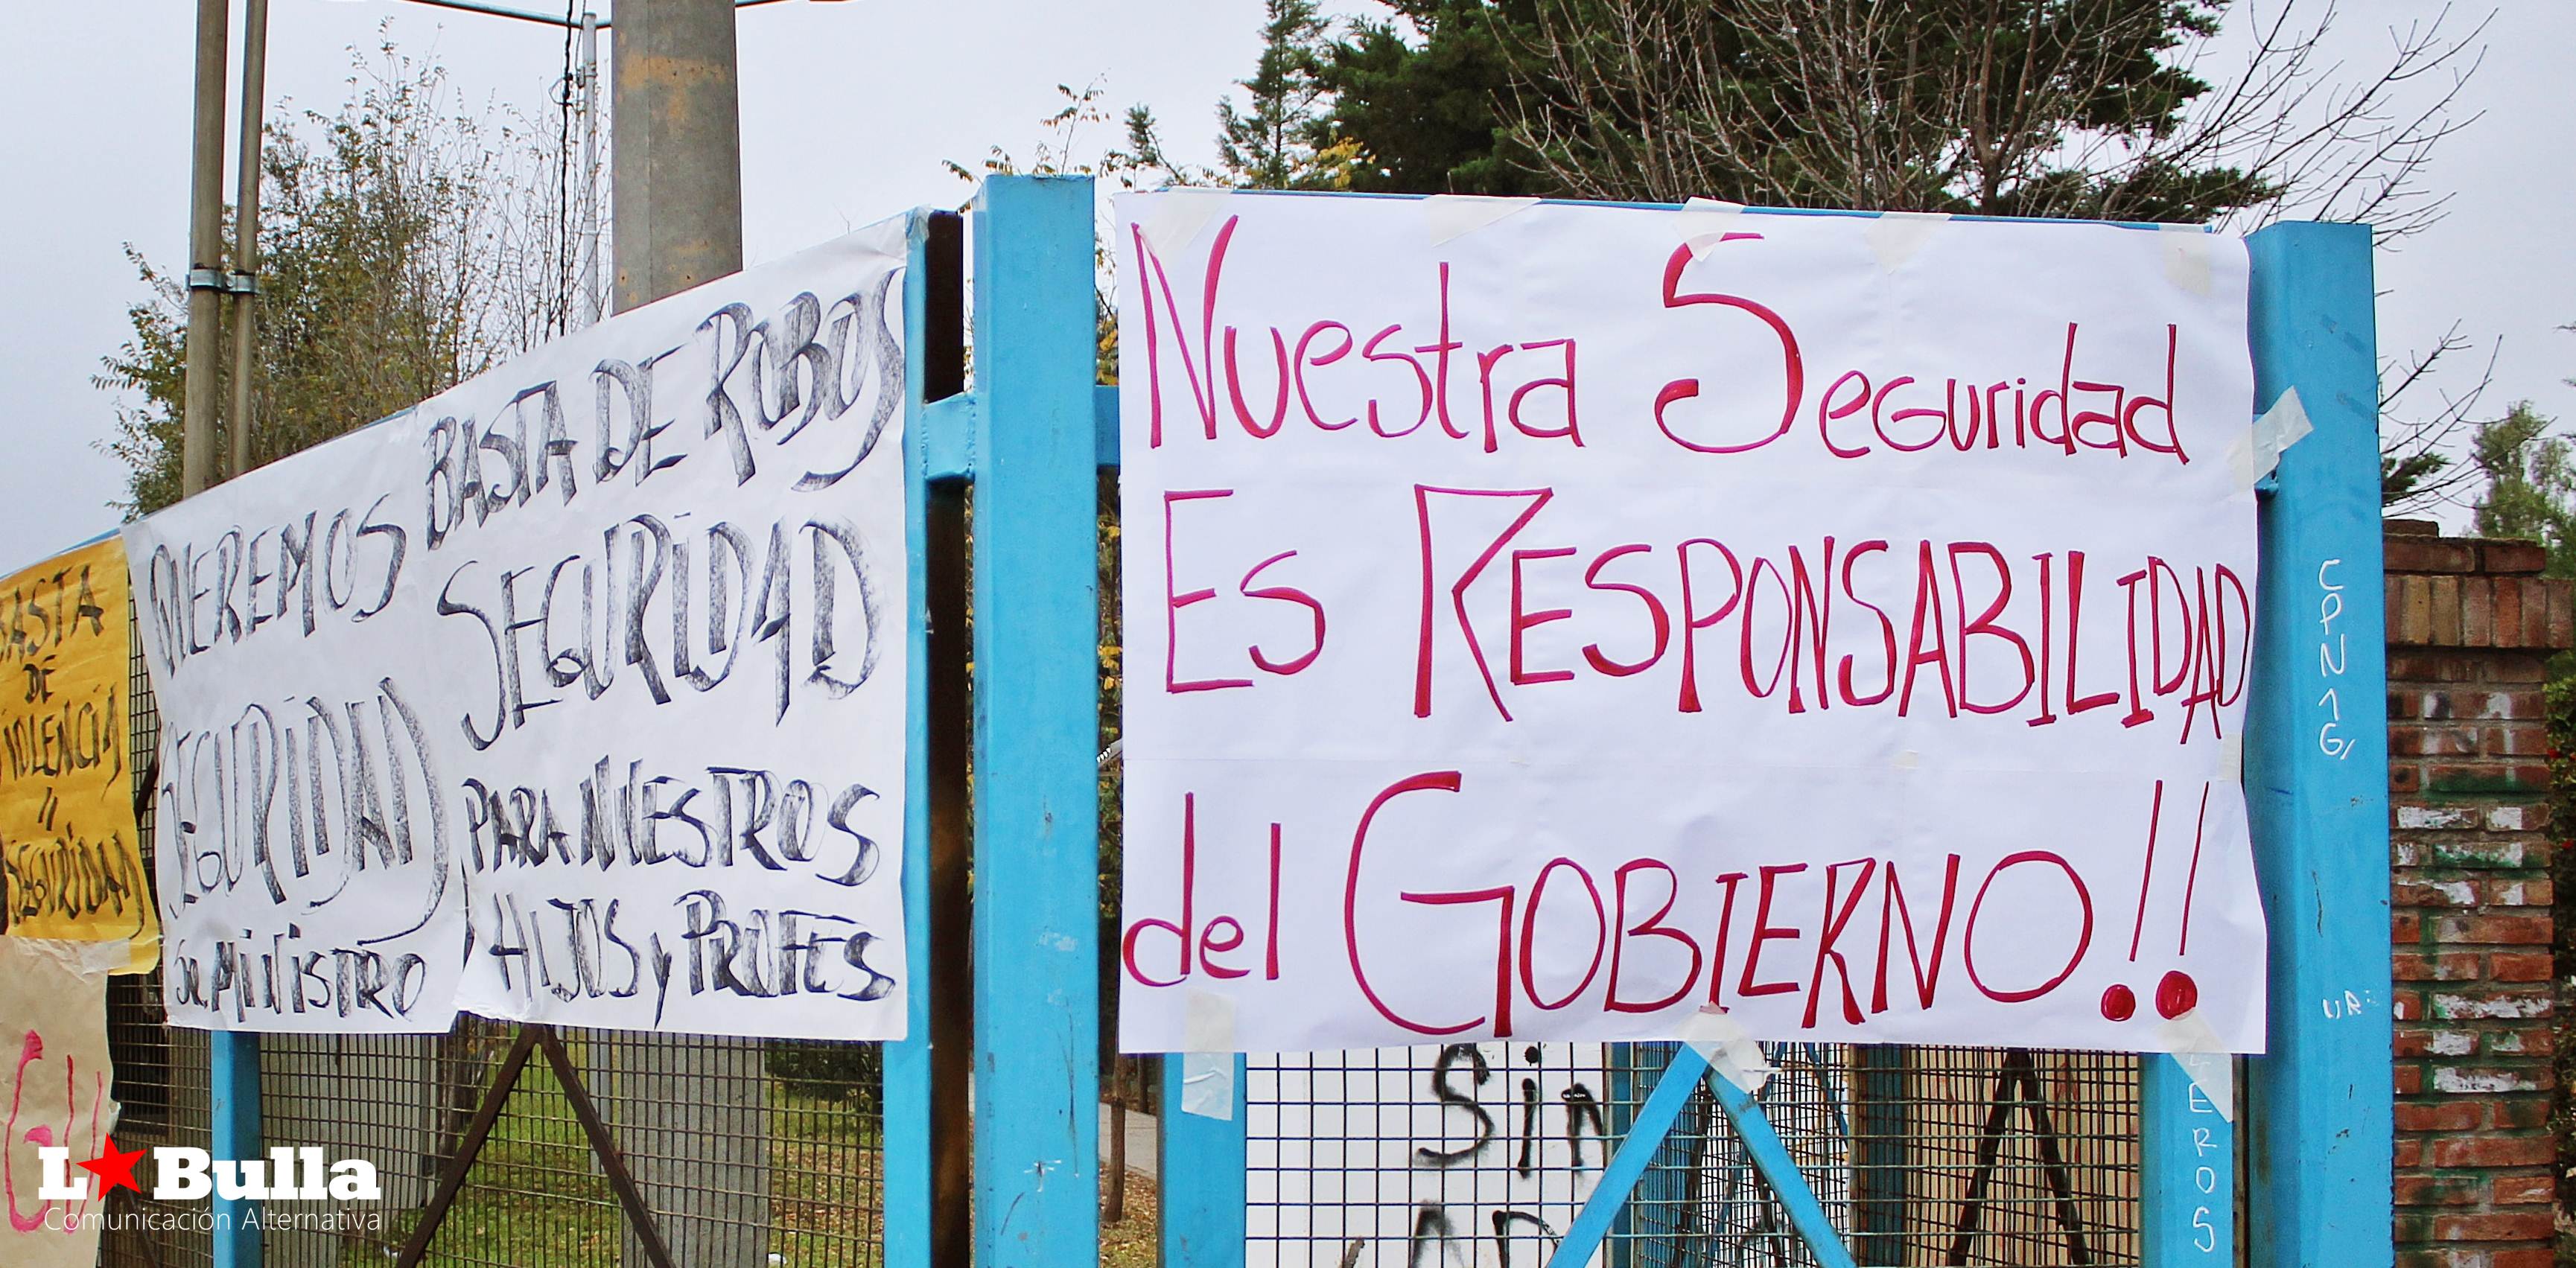 BASTA
DE
VIOLENCIA
"
SEGURIDAD
QUEREMOS
SEGURIDAD
Sr. MINISTRO
BASTA DE ROBOS
SEGURIDAD
PARA NUESTROS
HIJOS y PROFES
Nuestra Seguridad
Es RESPONSABILIDAD
del GOBIERNO!!
Sin
CPN1G
EROS
L★Bulla
Comunicación Alternativa